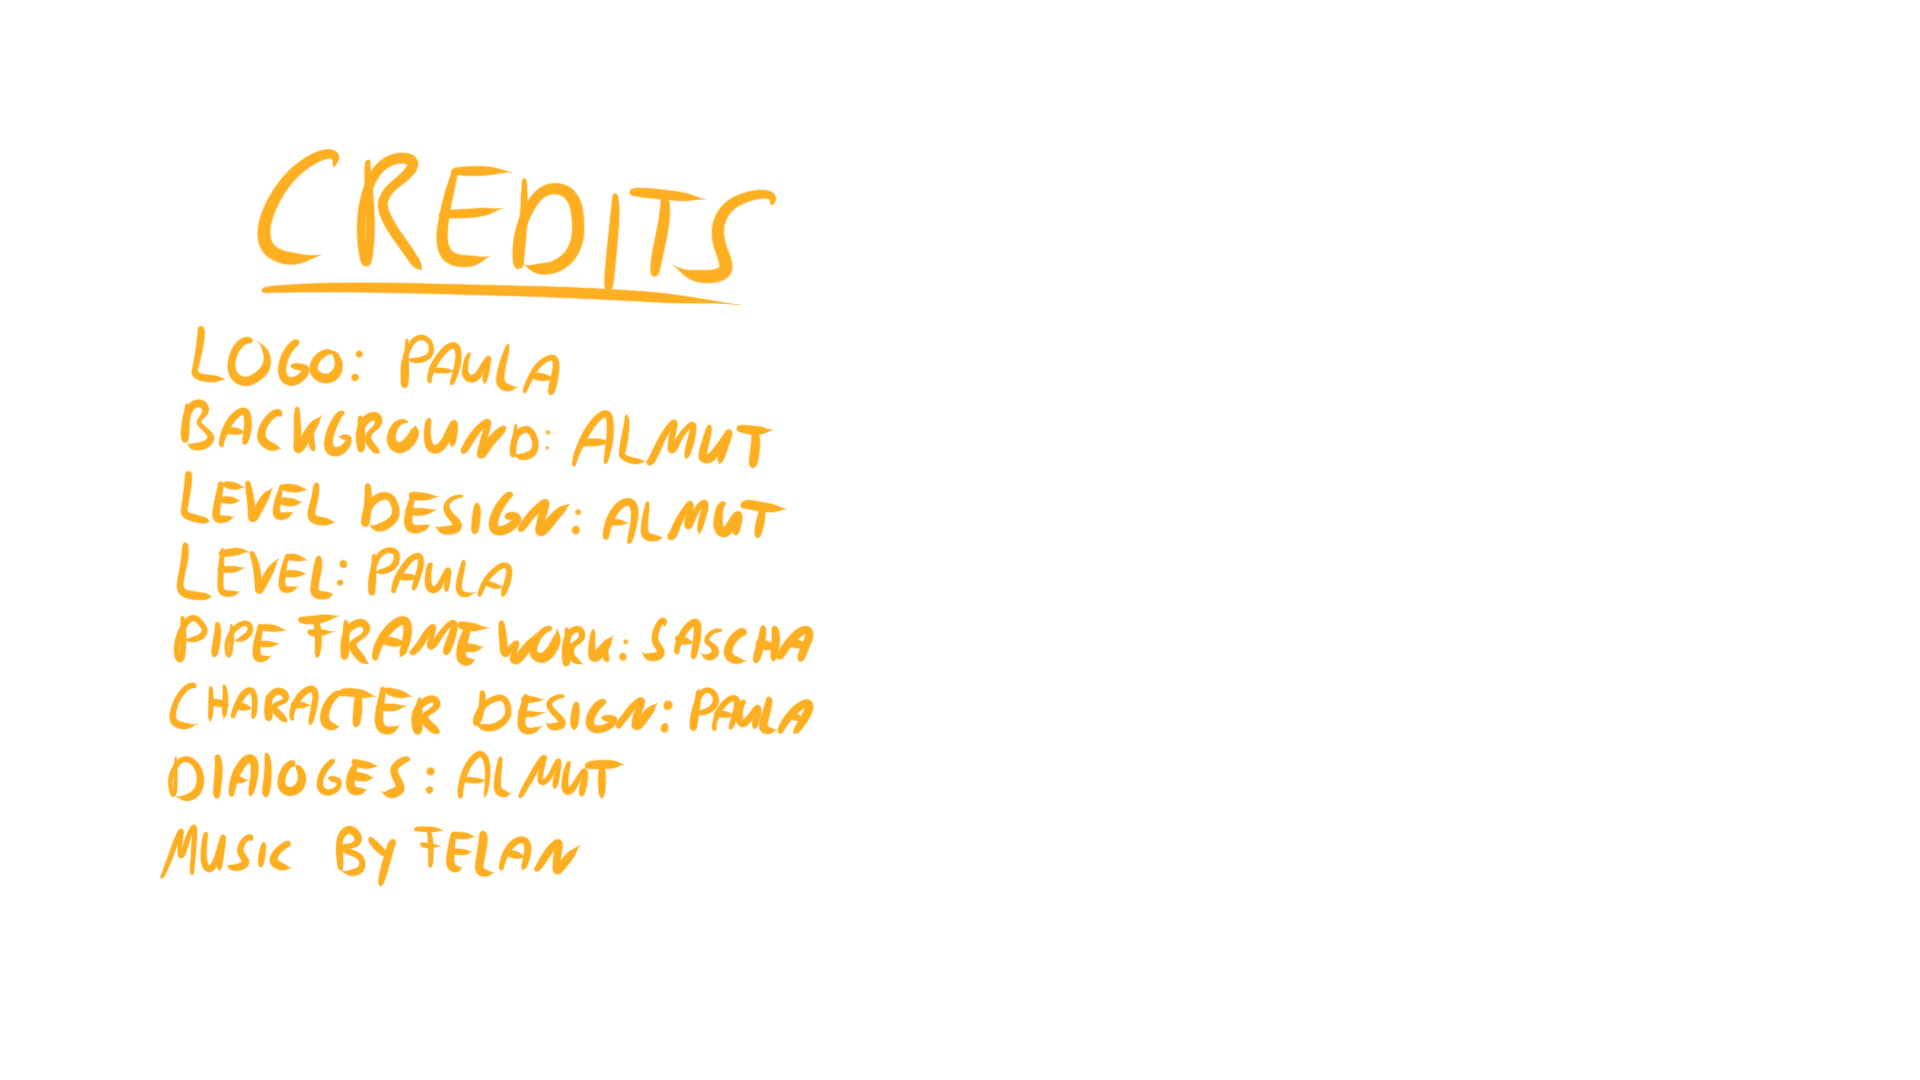 CREDITS
LOGO: PAULA
BACKGROUND: ALMUT
LEVEL DESIGN: ALMUT
LEVEL: PAULA
PIPE FRAMEWORK: SASCHA
CHARACTER DESIGN: PAULA
DIALOGES: ALMUT
MUSIC BY FELAN